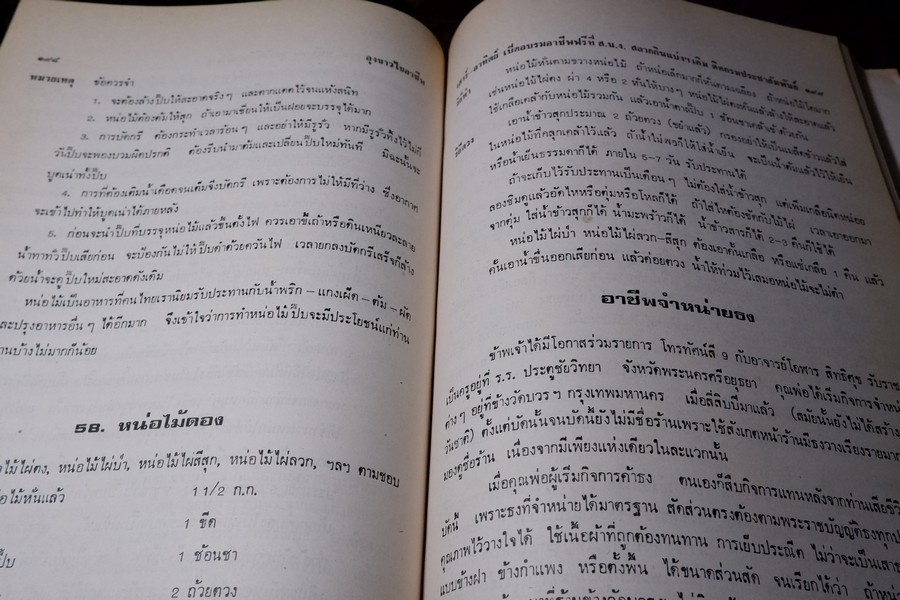 ๑๙๘ ลุงขาวไขอาชีพ
หมายเหตุ ข้อควรจำ
1. จะต้องล้างปี๊บให้สะอาดจริงๆ และตากแดดไว้จนแห้งสนิท
2. หน่อไม้ต้องต้มให้สุก ถ้าเอามาเชือนให้เป็นฝอยจะบรรจุได้มาก
3. การบัดกรี ต้องกระทำเวลาร้อนๆ และอย่าให้มีรูรั่ว หากมีรูรั่วทิ้งไว้ไม่กี่
วันปี๊บจะพองบวมผิดปรกติ ต้องรีบนำมาต้มและเปลี่ยนปี๊บใหม่ทันที มิฉะนั้นจะ
บูดเน่าทั้งปี๊บ
4. การที่ต้องเติมน้ำเดือดจนเต็มจึงบัดกรี เพราะต้องการไม่ให้มีที่ว่าง ซึ่งอากาศ
จะเข้าไปทำให้บูดเน่าได้ภายหลัง
5. ก่อนจะนำปี๊บที่บรรจุหน่อไม้แล้วขึ้นตั้งไฟ ควรเอาขี้เถ้าหรือดินเหนียวละลาย
น้ำทาทั่วปี๊บเสียก่อน จะป้องกันไม่ให้ปี๊บดำด้วยควันไฟ เวลายกลงบัดกรีเสร็จก็ล้าง
ด้วยน้ำจะดูปี๊บใหม่สะอาดดังเดิม
หน่อไม้เป็นอาหารที่คนไทยเรานิยมรับประทานกับน้ำพริก – แกงเผ็ด – ต้ม – ผัด
ละปรุงอาหารอื่นๆ ได้อีกมาก จึงเข้าใจว่าการทำหน่อไม้ปี๊บจะมีประโยชน์แก่ท่าน
านบ้างไม่มากก็น้อย
58. หน่อไม้ดอง
อไม้ไผ่ตง, หน่อไม้ไผ่ป่า, หน่อไม้ไผ่สีสุก, หน่อไม้ไผ่ลวก, ฯลฯ ตามชอบ
อไม้หั่นแล้ว 1 1/2 ก.ก.
1 ขีด
ปี๊บ 1 ช้อนชา
2 ถ้วยตวง
อาทิตย์ เปิดอบรมอาชีพฟรีที่ ส.น.ง. สลากกินแบ่งฯ เดิม ติดกรมประชาสัมพันธ์ ๑๙๙
หน่อไม้หั่นตามขวางหน่อไม้ ถ้าหน่อเล็กมากก็หั่นตามเฉลียง ถ้าหน่อไม้โตมาก
เช่นหน่อไม้ไผ่ตง ผ่า 4 หรือ 2 หั่นให้บางๆ หน่อไม้ไผ่ตงหั่นแล้วล้างให้สะอาดแล้ว
ใช้เกลือเคล้ากับหน่อไม้รวมกัน แล้วเอาน้ำตาลปี๊บ 1 ช้อนชาเคล้าเข้าด้วยกัน
เอาน้ำข้าวสุกประมาณ 2 ถ้วยตวง (ขยำแล้ว) กรองอย่าให้เป็นเมล็ดข้าวแล้วใส่
ในหน่อไม้ที่คลุกเคล้าไว้แล้ว ถ้าน้ำไม่พอก็ให้ใส่น้ำเย็น จะเป็นน้ำต้มแล้วไว้ให้เย็น
หรือน้ำเย็นธรรมดาก็ได้ ภายใน 5-7 วัน รับประทานได้
ถ้าจะเก็บไว้รับประทานเป็นเดือนๆ ไม่ต้องใส่น้ำข้าวสุก แต่เพิ่มเกลือนิดหน่อย
ลองชิมดูแล้วอัดไหหรือตุ่มหรือโหลก็ได้ ถ้าใส่ไหต้องขัดกับไม้ไผ่ เวลาเอาออกมา
จากตุ่ม ใส่น้ำข้าวสุกก็ได้ น้ำมะพร้าวก็ได้ น้ำข้าวสารก็ได้ 2-3 คืนก็ใช้ได้
หน่อไม้ไผ่ป่า หน่อไม้ไผ่ลวก-สีสุก ต้องเอาคั้นเกลือ หรือแช่เกลือ 1 คืน แล้ว
คั้นเอาน้ำขื่นออกเสียก่อน แล้วค่อยดวง น้ำให้ท่วมไว้เสมอหน่อไม้จะไม่ดำ
อาชีพจำหน่ายธง
ข้าพเจ้าได้มีโอกาสร่วมรายการ โทรทัศน์สี 9 กับอาจารย์โอฬาร สิทธิศุข รับราช
เป็นครูอยู่ที่ ร.ร. ประตูชัยวิทยา จังหวัดพระนครศรีอยุธยา คุณพ่อได้เริ่มกิจการจำหน่
ต่างๆ อยู่ที่ข้างวัดบวรฯ กรุงเทพมหานคร เมื่อสี่สิบปีมาแล้ว (สมัยนั้นยังไม่ได้สร้าง
วันชาติ) ตั้งแต่บัดนั้นจนบัดนี้ยังไม่มีชื่อร้านเพราะใช้สังเกตหน้าร้านมีธงวางเรียงรายมาก
มองดูชื่อร้าน เนื่องจากมีเพียงแห่งเดียวในละแวกนั้น
เมื่อคุณพ่อผู้เริ่มกิจการค้าธง ตนเองก็สืบกิจการแทนหลังจากท่านเสียชีวิ
บัดนี้ เพราะธงที่จำหน่ายได้มาตรฐาน สัดส่วนตรงต้องตามพระราชบัญญัติธงทุกป
คุณภาพไว้วางใจได้ ใช้เนื้อผ้าที่ถูกต้องทนทาน การเย็บประณีต ไม่ว่าจะเป็นเสาธ
แบบข้างฝา ข้างกำแพง หรือตั้งพื้น ได้ขนาดส่วนสัด จนเรียกได้ว่า ถ้าหน่